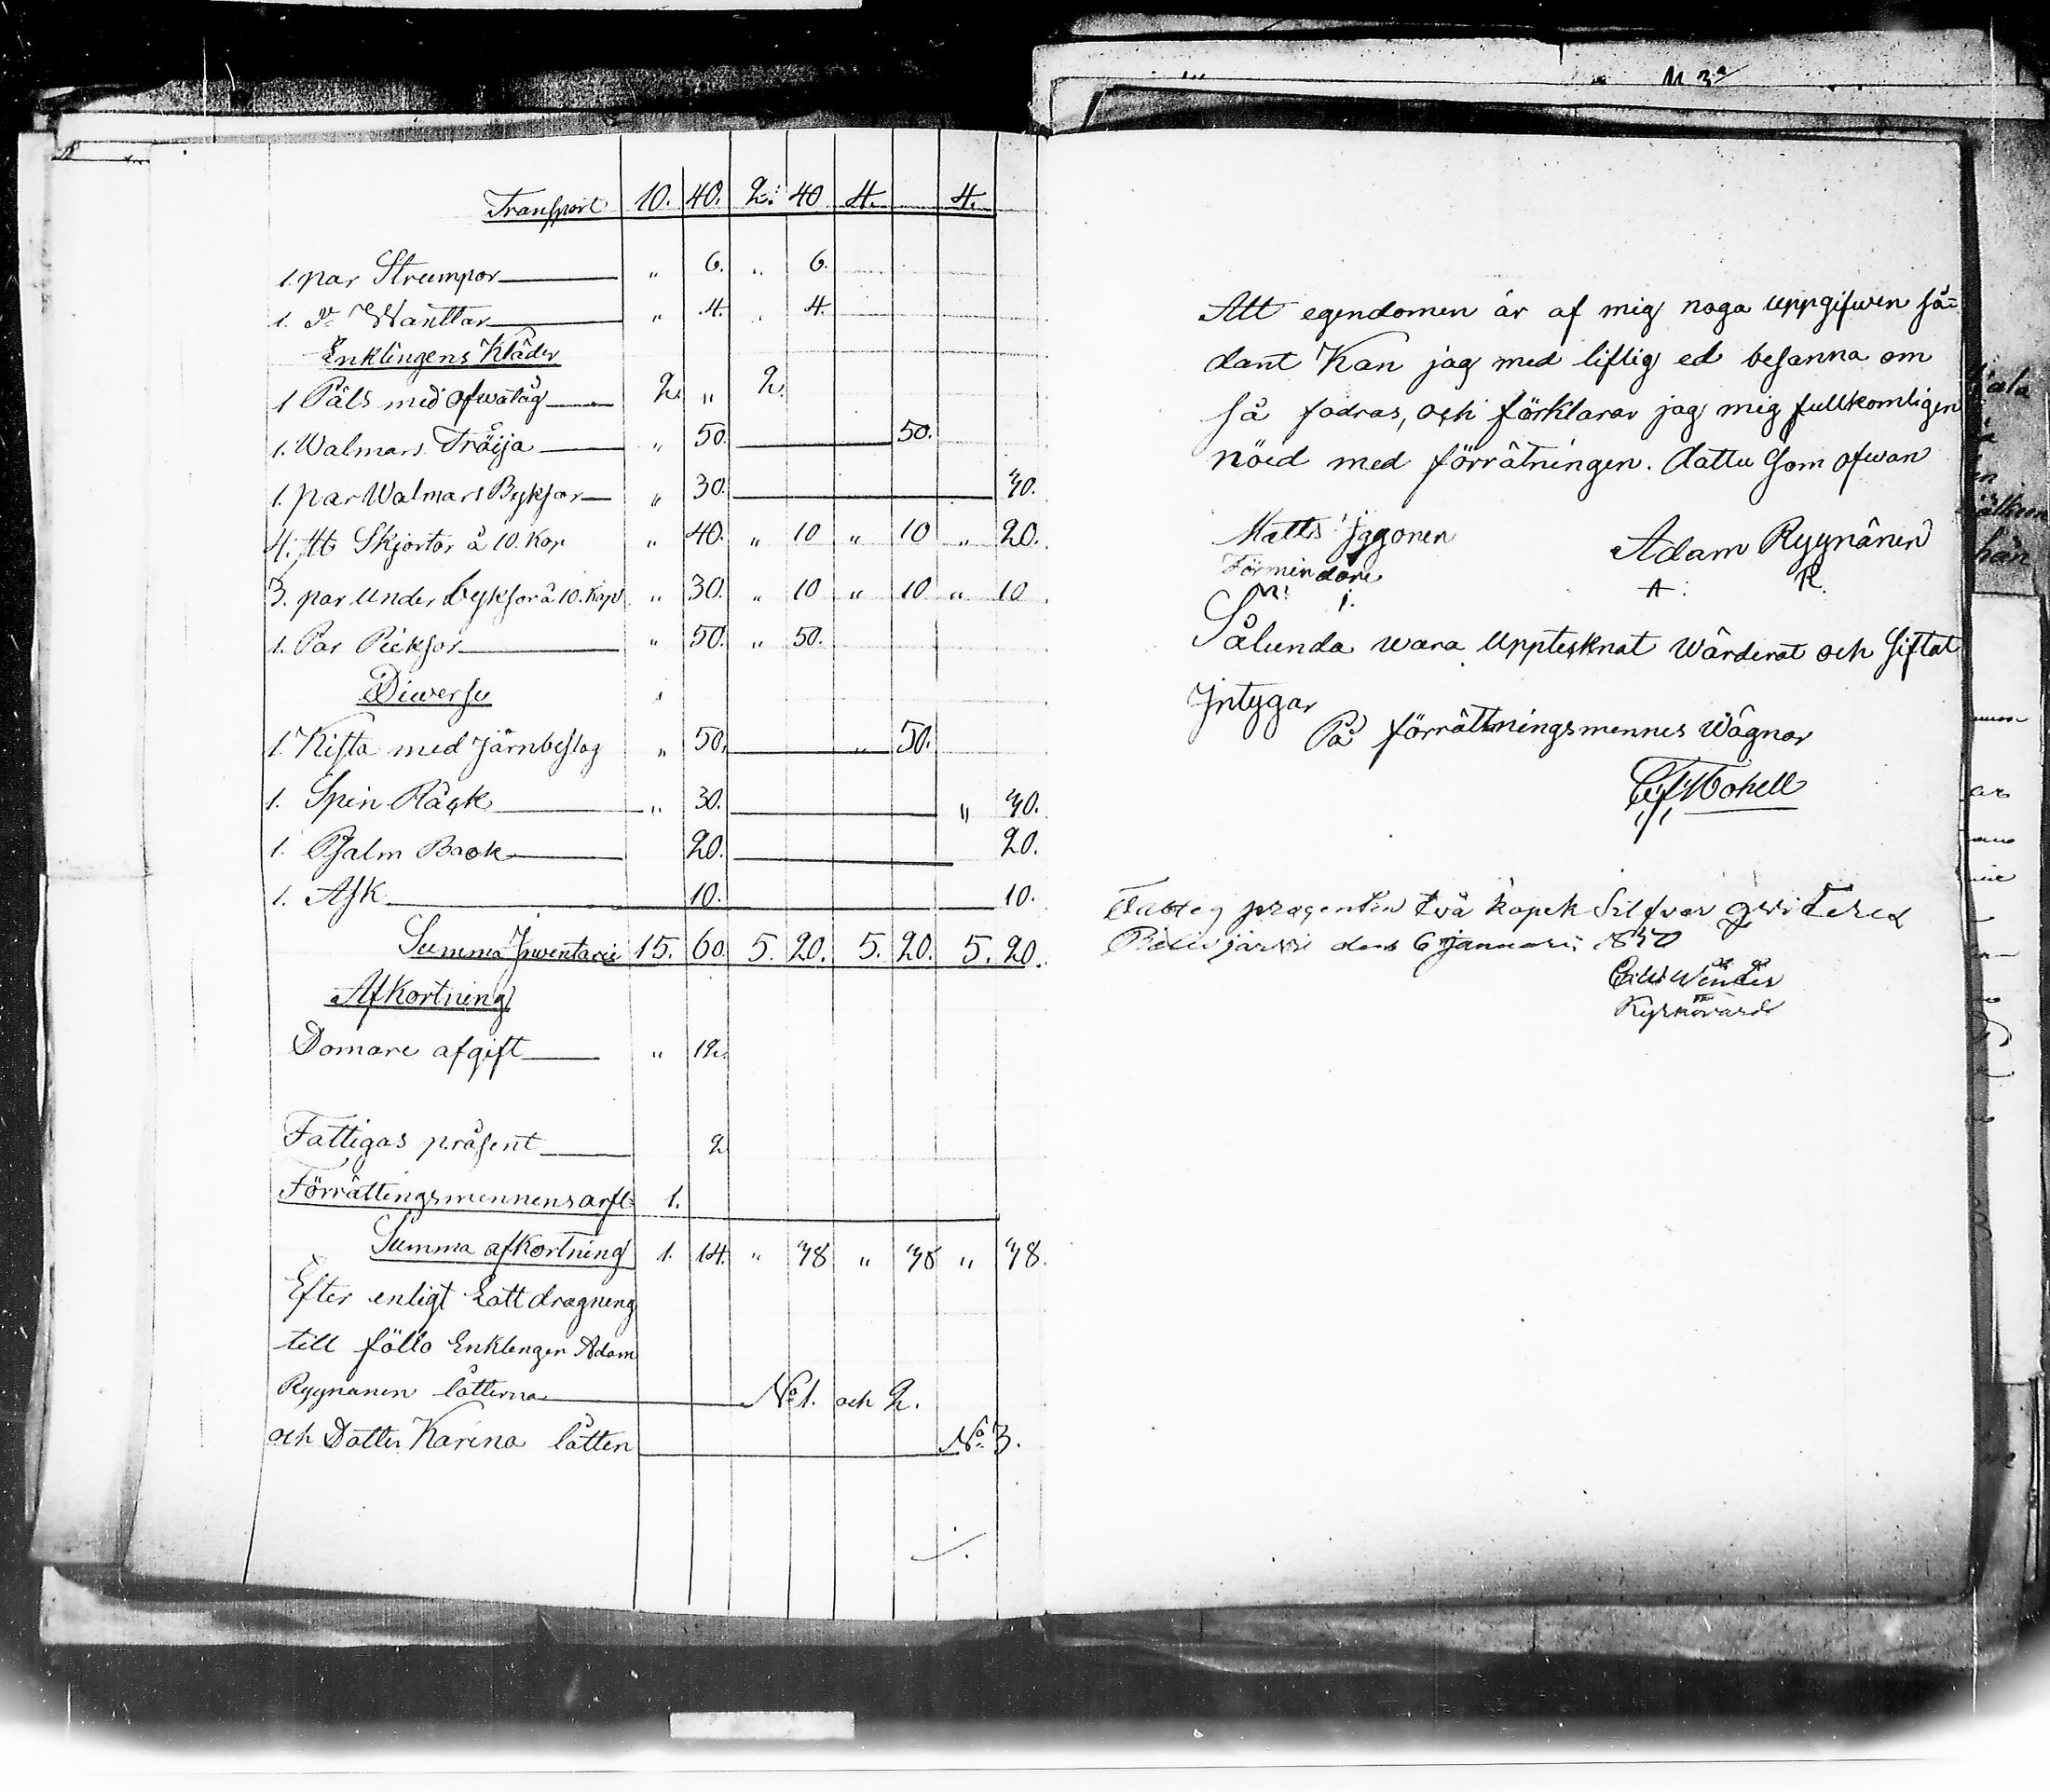 Transport 10. 40. 2. 40 4. 4.
1. par Strumpor " 6. " 6.
1. Do Wanttar " 4. " 4.
Enklingens Kläder
1 Päls med ofwatåg 2 " 2.
1. Walmars Tröija " 50. 50.
1. par Walmars Byksor " 30. 30.
4. st Skjortor á 10. Kop " 40. " 10 " 10 " 20.
3. par Under byksor á 10. Kop " 30. " 10 " 10 " 10.
1. Par Pieksor " 50. " 50.
Diwerse
1. Kista med Järnbeslag " 50. " 50.
1. Spin Råck " 30. " 30.
1. Psalm Book 20. 20.
1. Ask 10. 10.
Summa Inventarie 15. 60. 5. 20. 5. 20. 5. 20.
Afkortning
Domare afgift " 12.
Fattigas präsent 2
Förrättingsmennens arft 1.
Summa afkortning 1. 14. " 38 " 38 " 38.
Efter enligt Lottdragning
till föllo Enklingen Adam
Rygnanen lotterna No 1. och 2.
och Dotter Karina lotten No 3.
Att egendomen är af mig noga uppgifwen så=
dant Kan jag med liflig ed besanna om
så fodras, och förklarar jag mig fullkomligen
nöid med förrätningen. datta som ofwan
Matts Jggonen Adam Rygnänen
Förmindare
M: i. A: R.
Sålunda wara Upptesknat Wärderat och Siftat
Jntygar
På förrättningsmennes Wägnar
Fatteg prosenten två kopek Silfver qviteres
den 6 januari 1840
Kyrkovärd